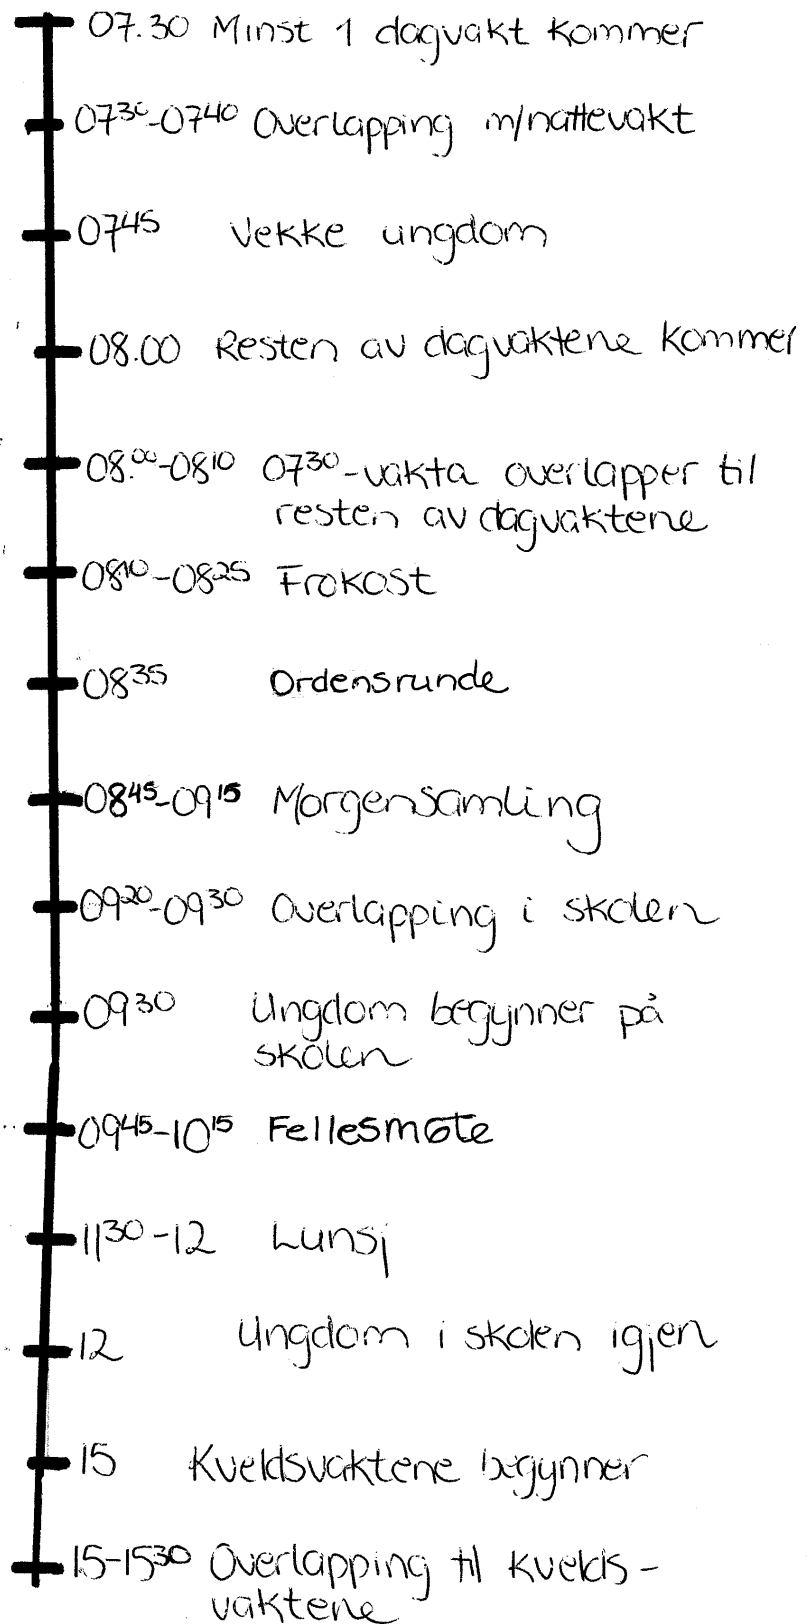 07.30 Minst 1 dagvakt kommer
07³⁰-07⁴⁰ Overlapping m/nattevakt
07⁴⁵ Vekke ungdom
08.00 Resten av dagvaktene kommer
08.⁰⁰-08¹⁰ 07³⁰-vakta overlapper til
resten av dagvaktene
08¹⁰-08²⁵ Frokost
08³⁵ Ordensrunde
08⁴⁵-09¹⁵ Morgensamling
09²⁰-09³⁰ Overlapping i skolen
09³⁰ Ungdom begynner på
skolen
09⁴⁵-10¹⁵ Fellesmøte
11³⁰-12 Lunsj
12 Ungdom i skolen igjen
15 Kveldsvaktene begynner
15-15³⁰ Overlapping til kvelds-
vaktene